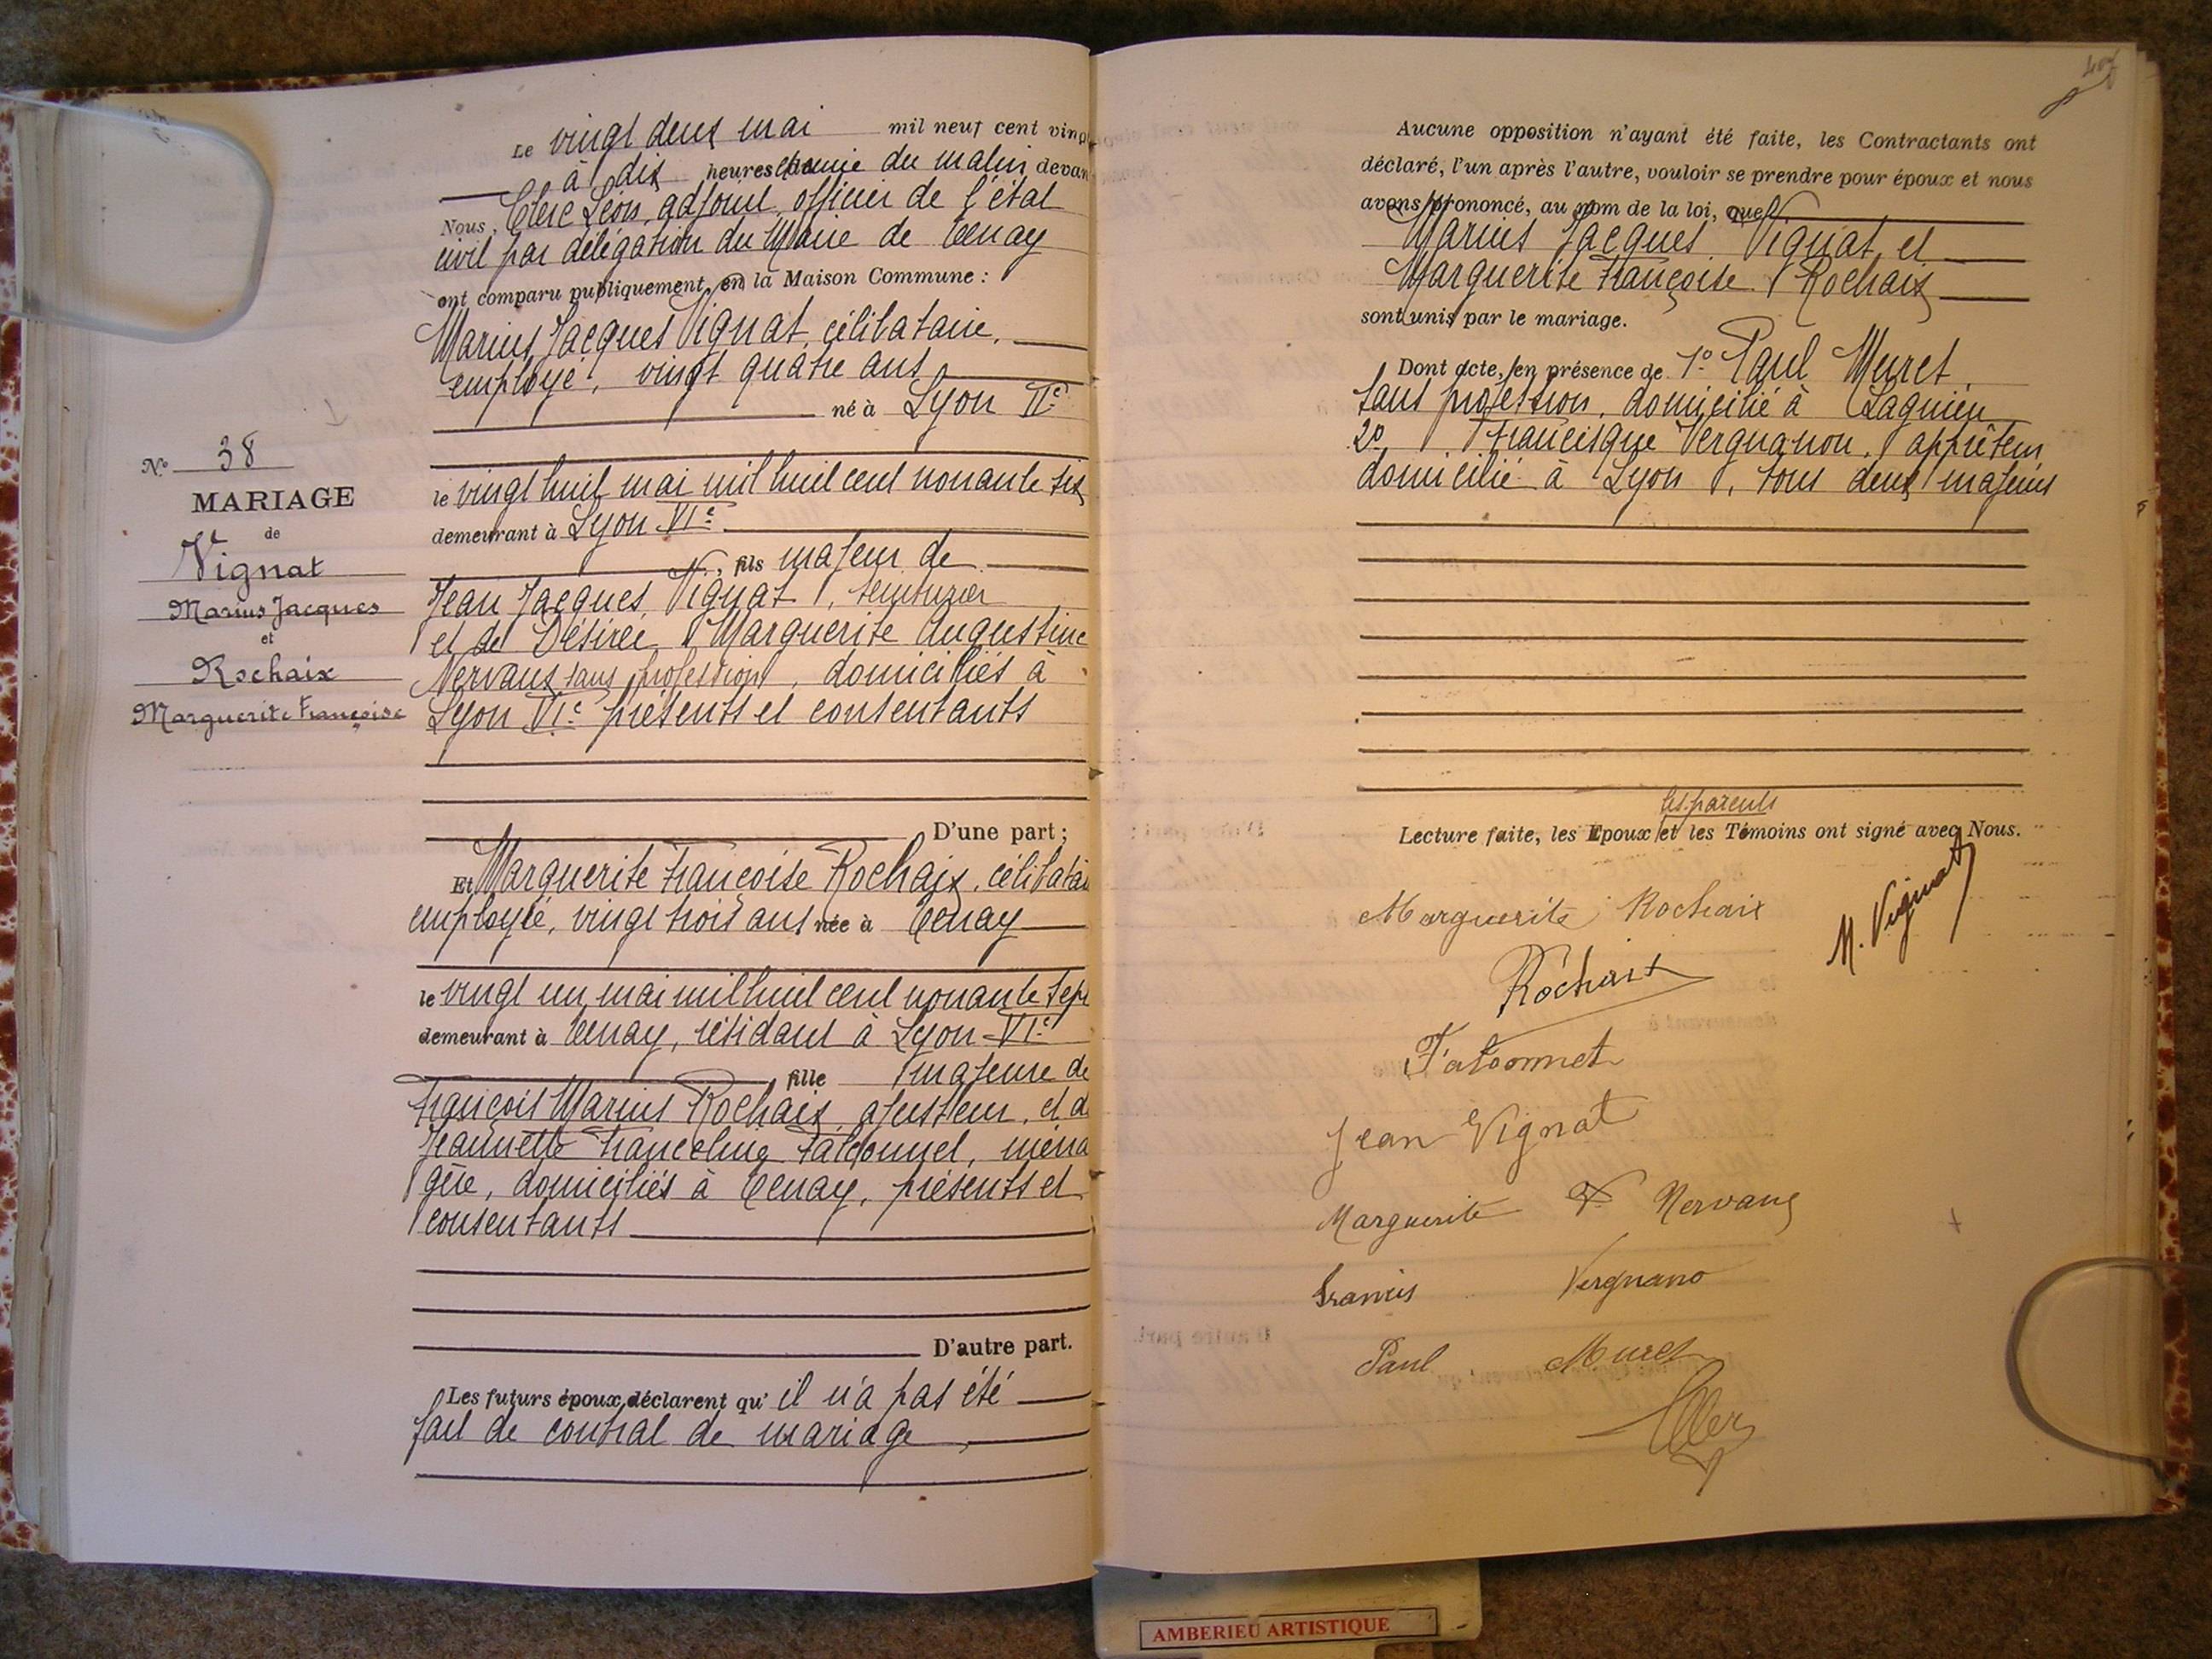 Le vingt deux mai mil neuf cent vingt
à dix heures & demie du matin devan
Nous, Clerc Léon, adjoint, officier de l'état
civil par délégation du Maire de Tenay
ont comparu publiquement en la Maison Commune :
Marius Jacques Vignat, célibataire,
employé, vingt quatre ans
né à Lyon IIe
le vingt huit mai mil huit cent nonante six
demeurant à Lyon VIe
, fils majeur de
Jean Jacques Vignat, teinturier
et de Désirée Marguerite Augustine
Nervaux sans profession, domiciliés à
Lyon VIe présents et consentants
D'une part ;
Et Marguerite Françoise Rochaix, célibatai
employée, vingt trois ans née à Tenay
le vingt un mai mil huit cent nonante sept
demeurant à Tenay, résidant à Lyon-VIe
fille majeure de
François Marius Rochaix, ajusteur, et d
Jeannette Franceline Falconnet, ména
gère, domiciliés à Tenay, présents et
consentants
D'autre part.
Les futurs époux déclarent qu' il n'a pas été
fait de contrat de mariage
No 38
MARIAGE
de
Vignat
Marius Jacques
et
Rochaix
Marguerite Françoise
Aucune opposition n'ayant été faite, les Contractants ont
déclaré, l'un après l'autre, vouloir se prendre pour époux et nous
avons prononcé, au nom de la loi, que
Marius Jacques Vignat et
Marguerite Françoise Rochaix
sont unis par le mariage.
Dont acte, en présence de 1o Paul Muret
sans profession, domicilié à Lagnieu
2o Francisque Vergnanon, apprêteur
domicilié à Lyon, tous deux majeurs
les parents
Lecture faite, les Epoux et les Témoins ont signé avec Nous.
Marguerite Rochaix
M. Vignat
Rochaix
Falconnet
Jean Vignat
Marguerite Nervaux
Francis Vergnano
Paul Muret
AMBERIEU ARTISTIQUE